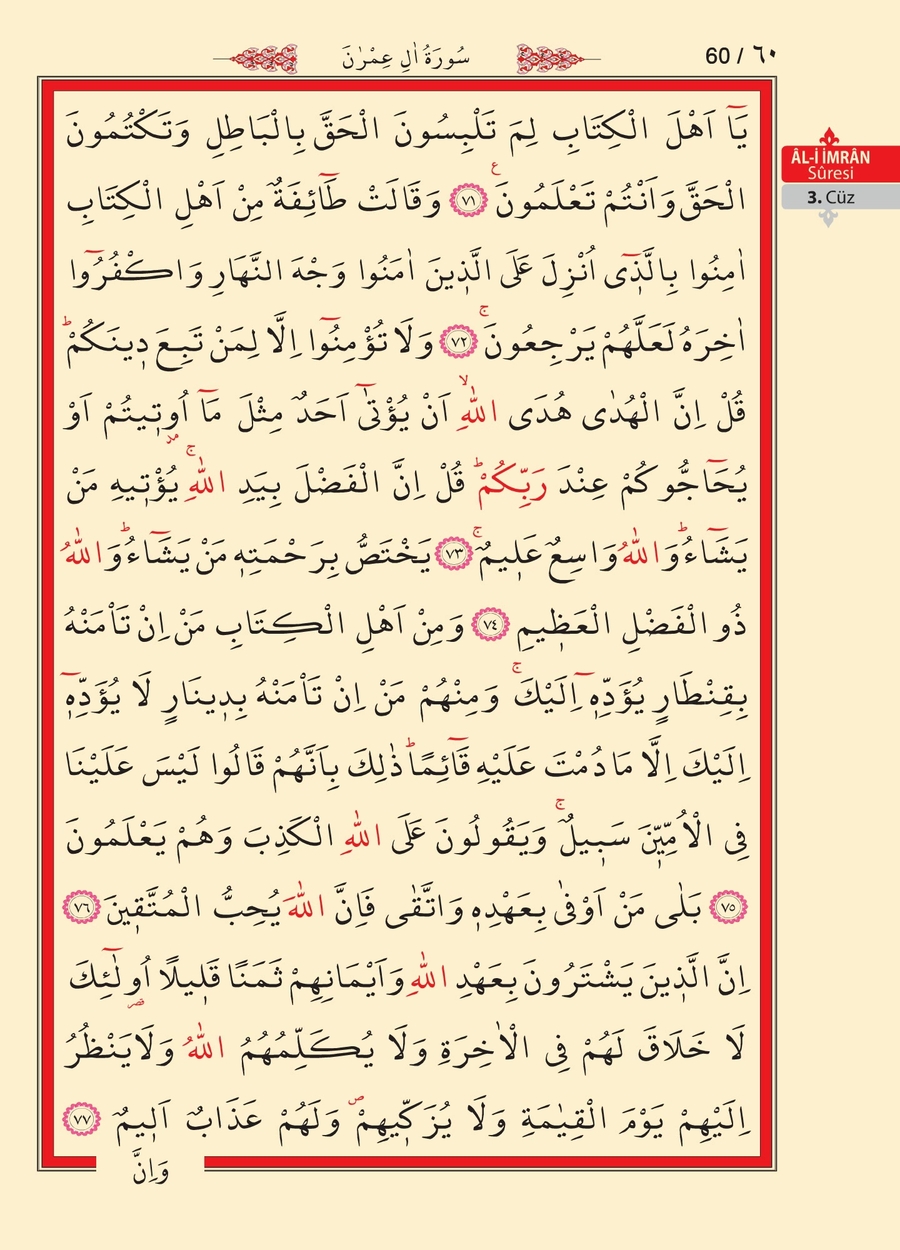 سُورَةُ اٰلِ عِمْرٰنَ
60 / ٦٠
ÂL-İ İMRÂN
Sûresi
3. Cüz
يَٓا اَهْلَ الْكِتَابِ لِمَ تَلْبِسُونَ الْحَقَّ بِالْبَاطِلِ وَتَكْتُمُونَ
الْحَقَّ وَاَنْتُمْ تَعْلَمُونَ ع ﴿٧١﴾ وَقَالَتْ طَٓائِفَةٌ مِنْ اَهْلِ الْكِتَابِ
اٰمِنُوا بِالَّذ۪ٓى اُنْزِلَ عَلَى الَّذ۪ينَ اٰمَنُوا وَجْهَ النَّهَارِ وَاكْفُرُٓوا
اٰخِرَهُ لَعَلَّهُمْ يَرْجِعُونَۚ ﴿٧٢﴾ وَلَا تُؤْمِنُٓوا اِلَّا لِمَنْ تَبِعَ د۪ينَكُمْۜ
قُلْ اِنَّ الْهُدٰى هُدَى اللّٰهِۙ اَنْ يُؤْتٰٓى اَحَدٌ مِثْلَ مَٓا اُو۫ت۪يتُمْ اَوْ
يُحَٓاجُّوكُمْ عِنْدَ رَبِّكُمْۜ قُلْ اِنَّ الْفَضْلَ بِيَدِ اللّٰهِۚ يُؤْت۪يهِ مَنْ
يَشَٓاءُۜ وَاللّٰهُ وَاسِعٌ عَل۪يمٌۚ ﴿٧٣﴾ يَخْتَصُّ بِرَحْمَتِه۪ مَنْ يَشَٓاءُۜ وَاللّٰهُ
ذُو الْفَضْلِ الْعَظ۪يمِ ﴿٧٤﴾ وَمِنْ اَهْلِ الْكِتَابِ مَنْ اِنْ تَأْمَنْهُ
بِقِنْطَارٍ يُؤَدِّه۪ٓ اِلَيْكَۚ وَمِنْهُمْ مَنْ اِنْ تَأْمَنْهُ بِد۪ينَارٍ لَا يُؤَدِّه۪ٓ
اِلَيْكَ اِلَّا مَا دُمْتَ عَلَيْهِ قَٓائِمًاۜ ذٰلِكَ بِاَنَّهُمْ قَالُوا لَيْسَ عَلَيْنَا
فِى الْاُمِّيّ۪نَ سَب۪يلٌۚ وَيَقُولُونَ عَلَى اللّٰهِ الْكَذِبَ وَهُمْ يَعْلَمُونَ
﴿٧٥﴾ بَلٰى مَنْ اَوْفٰى بِعَهْدِه۪ وَاتَّقٰى فَاِنَّ اللّٰهَ يُحِبُّ الْمُتَّق۪ينَ ﴿٧٦﴾
اِنَّ الَّذ۪ينَ يَشْتَرُونَ بِعَهْدِ اللّٰهِ وَاَيْمَانِهِمْ ثَمَنًا قَل۪يلًا اُو۬لٰٓئِكَ
لَا خَلَاقَ لَهُمْ فِى الْاٰخِرَةِ وَلَا يُكَلِّمُهُمُ اللّٰهُ وَلَا يَنْظُرُ
اِلَيْهِمْ يَوْمَ الْقِيٰمَةِ وَلَا يُزَكّ۪يهِمْۖ وَلَهُمْ عَذَابٌ اَل۪يمٌ ﴿٧٧﴾
وَاِنَّ